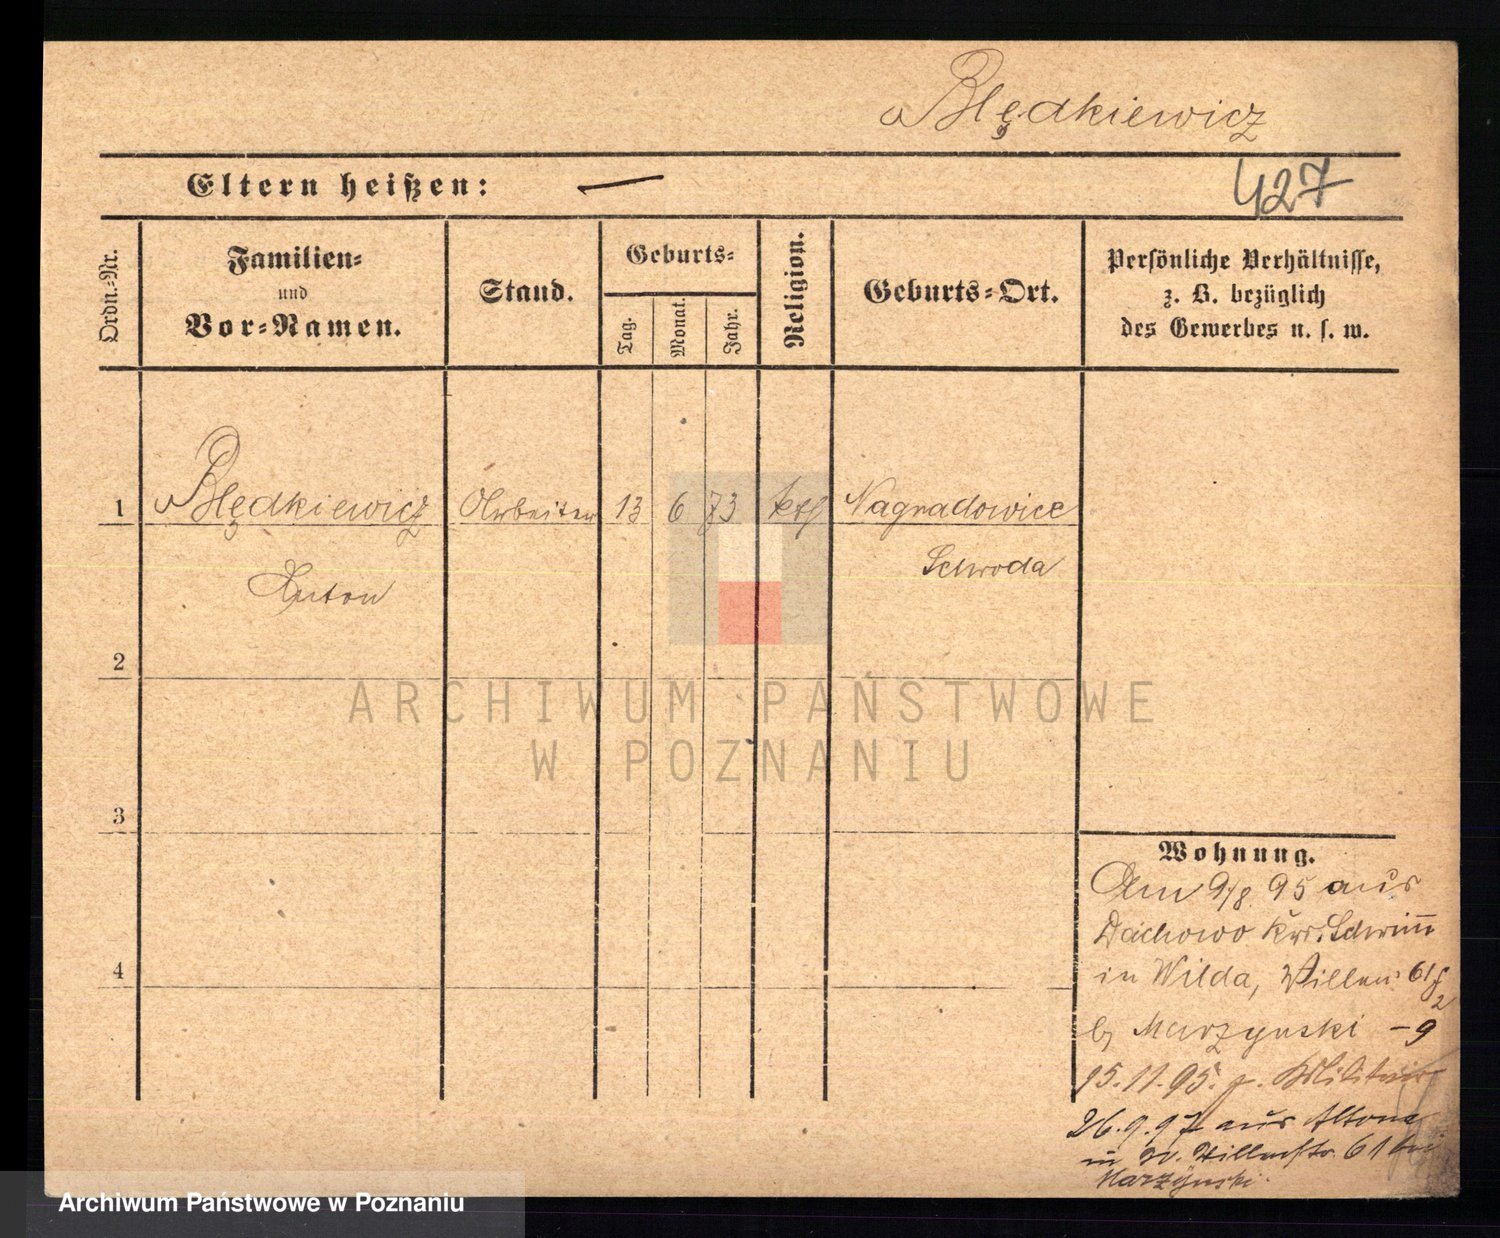 Błędkiewicz
Eltern heißen: —
427
Ordn.-Nr.
Familien-
und
Vor-Namen.
Stand.
Geburts-
Tag.
Monat.
Jahr.
Religion.
Geburts-Ort.
Persönliche Verhältnisse,
z. B. bezüglich
des Gewerbes u. s. w.
1 Błędkiewicz Arbeiter 13 6 73 kath Nagradowice
Anton Schroda
2
3
4
Wohnung.
Am 9/8 95 aus
Dachowo Kr. Schrim̅
in Wilda, Villen 61
b/ Marzynski – 9
15.11.95. z. Militair
26.9.97 aus Altona
in W. Villenstr. 61 bei
Marzÿnski.
ARCHIWUM PAŃSTWOWE
W POZNANIU
Archiwum Państwowe w Poznaniu